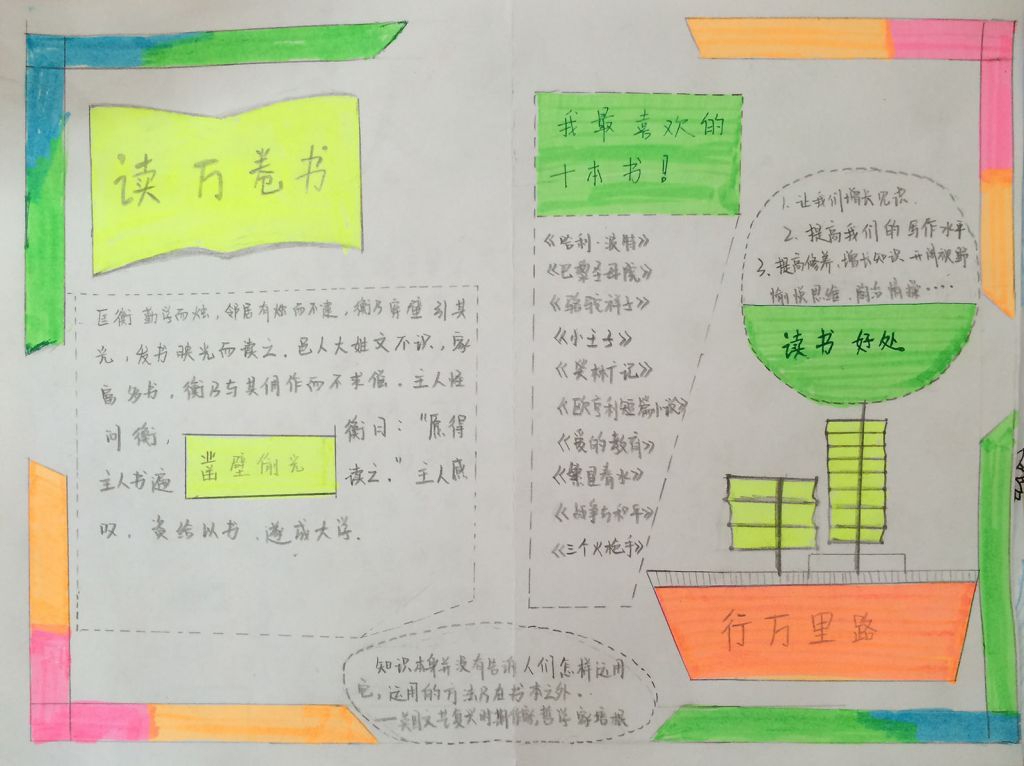 读万卷书
匡衡勤学而烛，邻居有烛而不逮，衡乃穿壁引其
光，发书映光而读之。邑人大姓文不识，家
富多书，衡乃与其佣作而不求偿。主人怪
问衡，
衡曰："愿得
主人书遍
读之。"主人感
叹，资给以书，遂成大学.
凿壁偷光
我最喜欢的
十本书！
《哈利·波特》
《巴黎圣母院》
《骆驼祥子》
《小王子》
《笑林广记》
《欧亨利短篇小说》
《爱的教育》
《繁星春水》
《战争与和平》
《三个火枪手》
1.让我们增长见识.
2.提高我们的写作水平
3.提高修养、增长知识 开阔视野
愉悦思维、陶冶情操····
读书好处
行万里路
知识本身并没有告诉人们怎样运用
它，运用的方法乃在书本之外..
——英国文艺复兴时期作家,哲学家培根